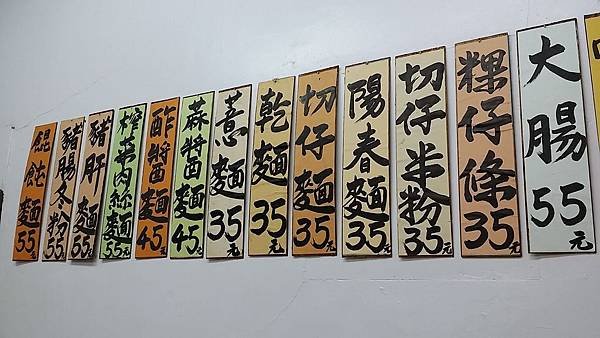 餛飩麵55元
豬腸冬粉55元
豬肝麵55元
榨菜肉絲麵55元
酢醬麵45元
蔴醬麵45元
薏麵35元
乾麵35元
切仔麵35元
陽春麵35元
切仔米粉35元
粿仔條35元
大腸55元